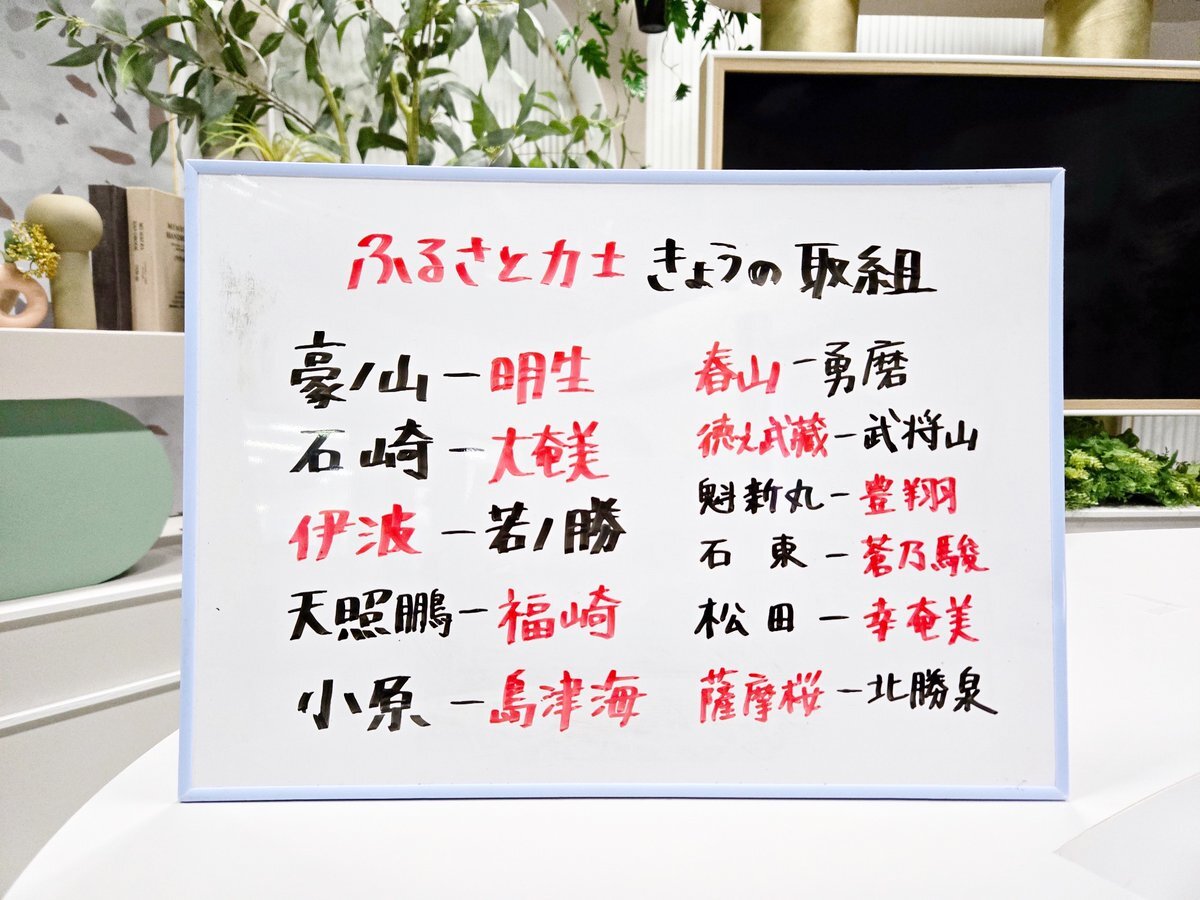 ふるさと力士 きょうの取組
豪ノ山－明生
石崎－大奄美
伊波－若ノ勝
天照鵬－福崎
小原－島津海
春山－勇磨
徳之武藏－武将山
魁新丸－豊翔
石東－蒼乃駿
松田－幸奄美
薩摩桜－北勝泉